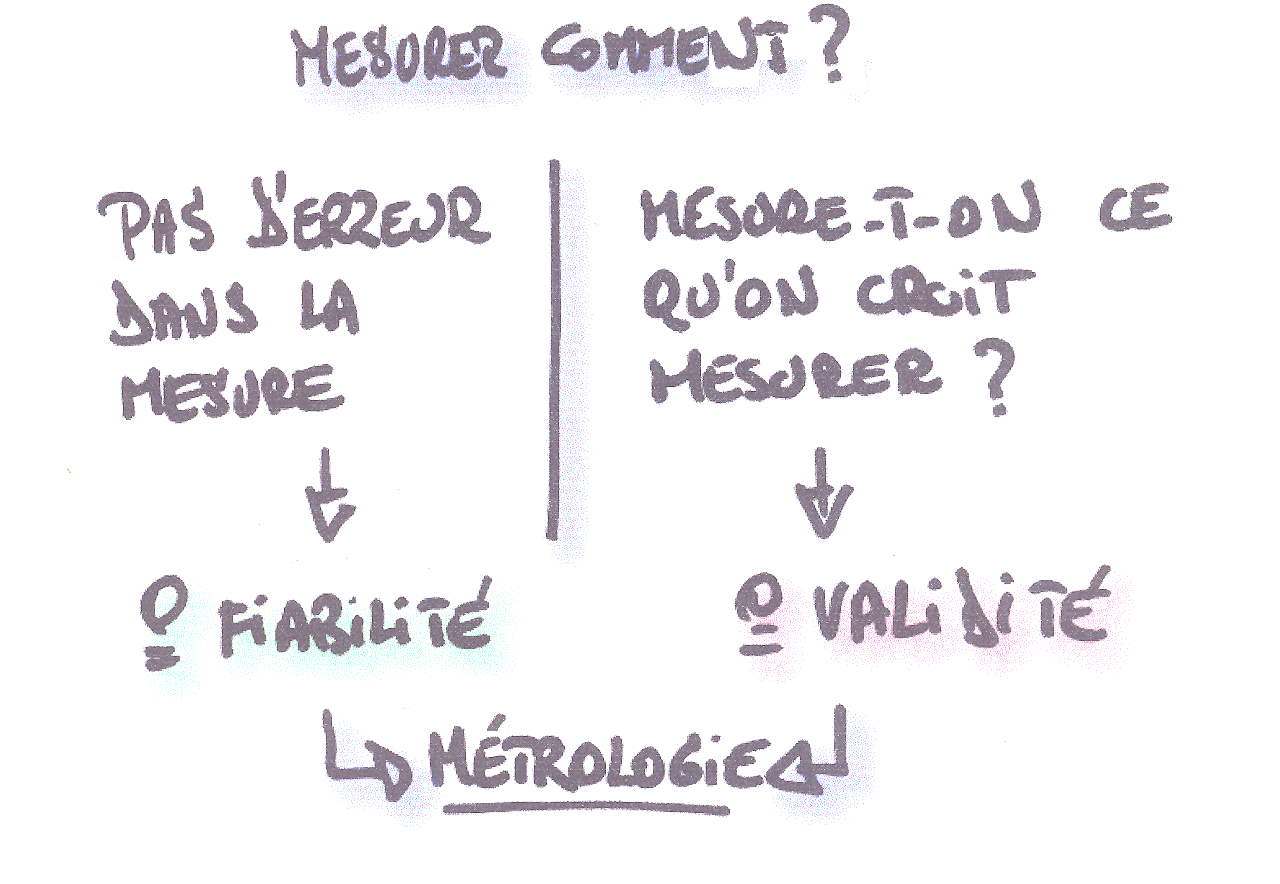 MESURER COMMENT ?
PAS D'ERREUR
DANS LA
MESURE
MESURE-T-ON CE
QU'ON CROIT
MESURER ?
FIABILITÉ
VALIDITÉ
MÉTROLOGIE